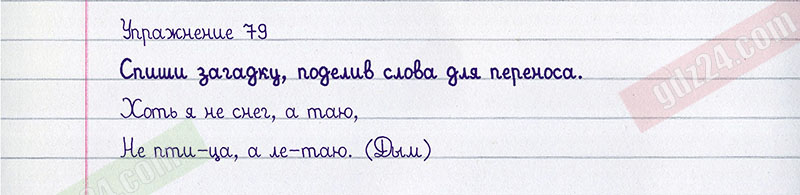 Упражнение 79
Спиши загадку, поделив слова для переноса.
Хоть я не снег, а таю,
Не пти-ца, а ле-таю. (Дым)
gdz24.com
24.com